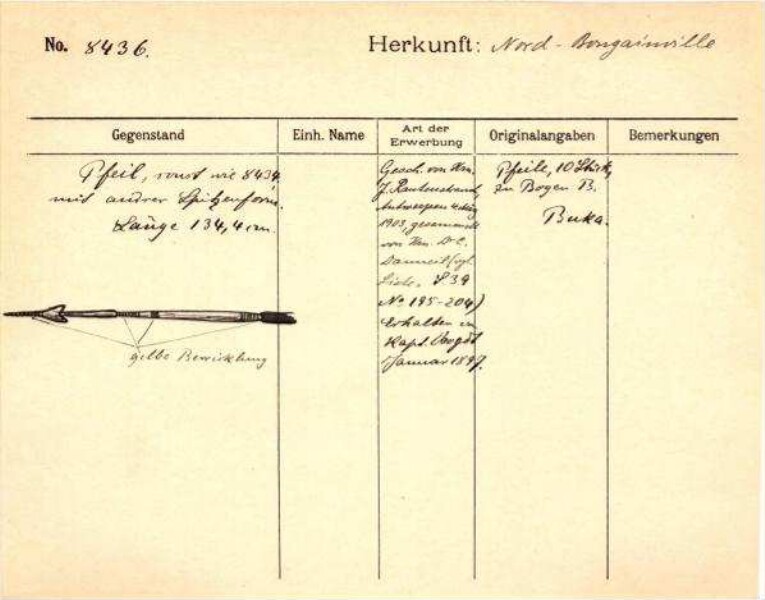 No. 8436. Herkunft: Nord-Bougainville
Gegenstand Einh. Name Art der Erwerbung Originalangaben Bemerkungen
Pfeil, sonst wie 8434
mit andrer Spitzenform.
Länge 134,4 cm.
gelbe Bewicklung
Gesch. von Hrn.
J. Rautenstrauch,
Antwerpen
1903, gesammelt
von Hrn. Dr. C.
Danneil (vgl.
Liste. S 39
No 195-204)
Erhalten
Kapt. Voogdt
Januar 1897.
Pfeile, 10 Stück,
zu Bogen B.
Buka.